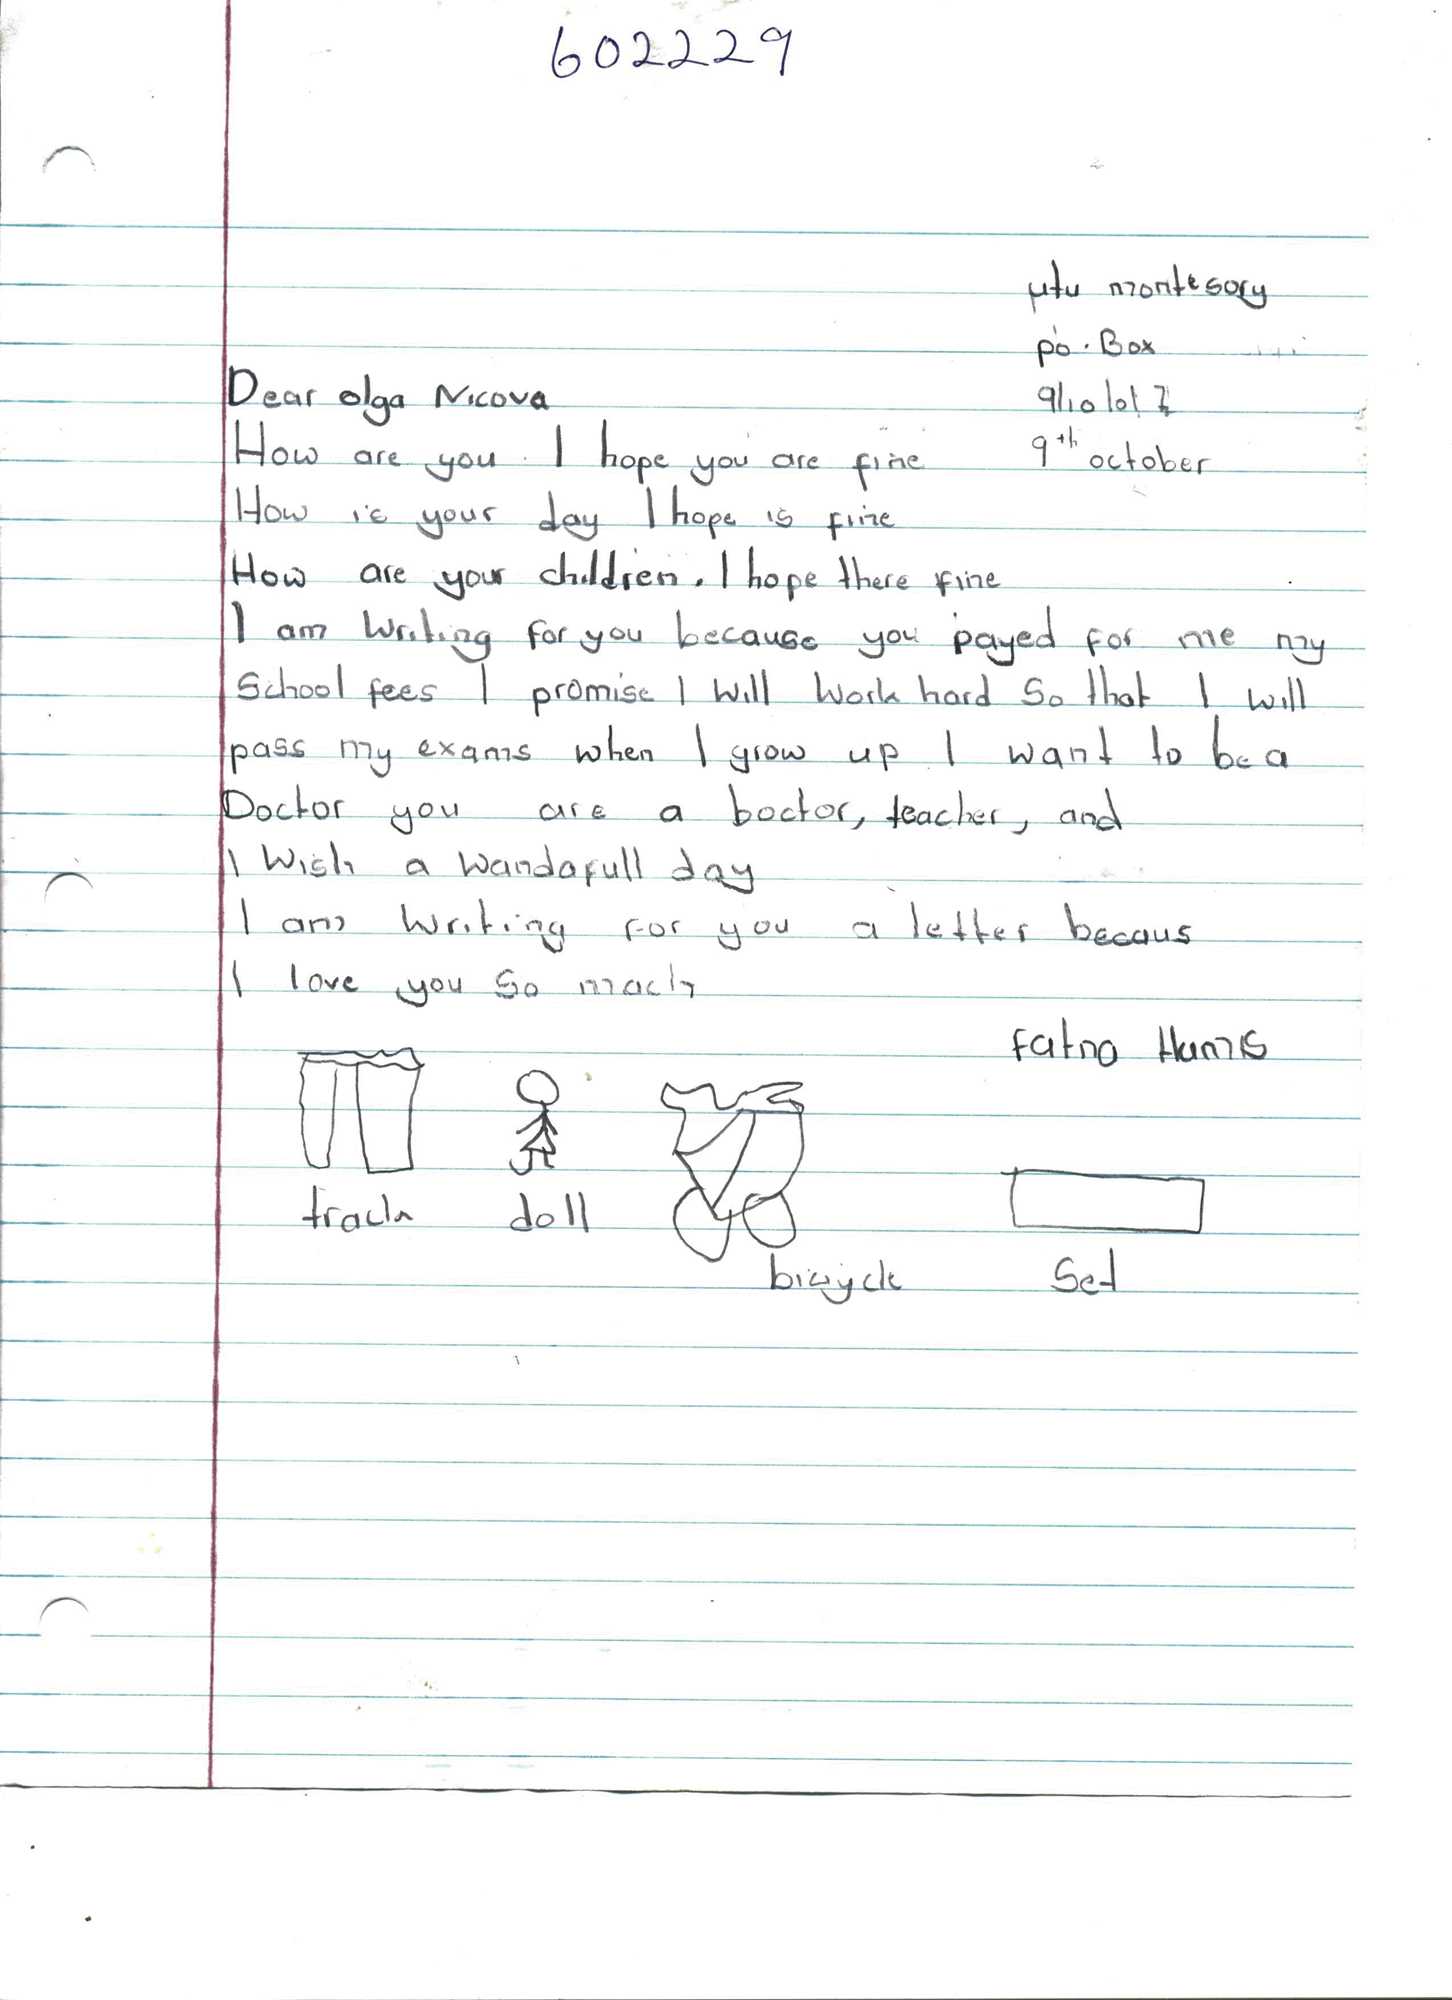 602229
montesory
po. Box
9th october
Dear olga Nicova
How are you. I hope you are fine
How is your day I hope is fine
How are your children. I hope there fine
I am writing for you because you payed for me my
School fees I promise I will work hard So that I will
pass my exams when I grow up I want to be a
Doctor you are a boctor, teacher, and
I wish a wandafull day
I am writing for you a letter becaus
I love you so mach
doll
bicycle
Set